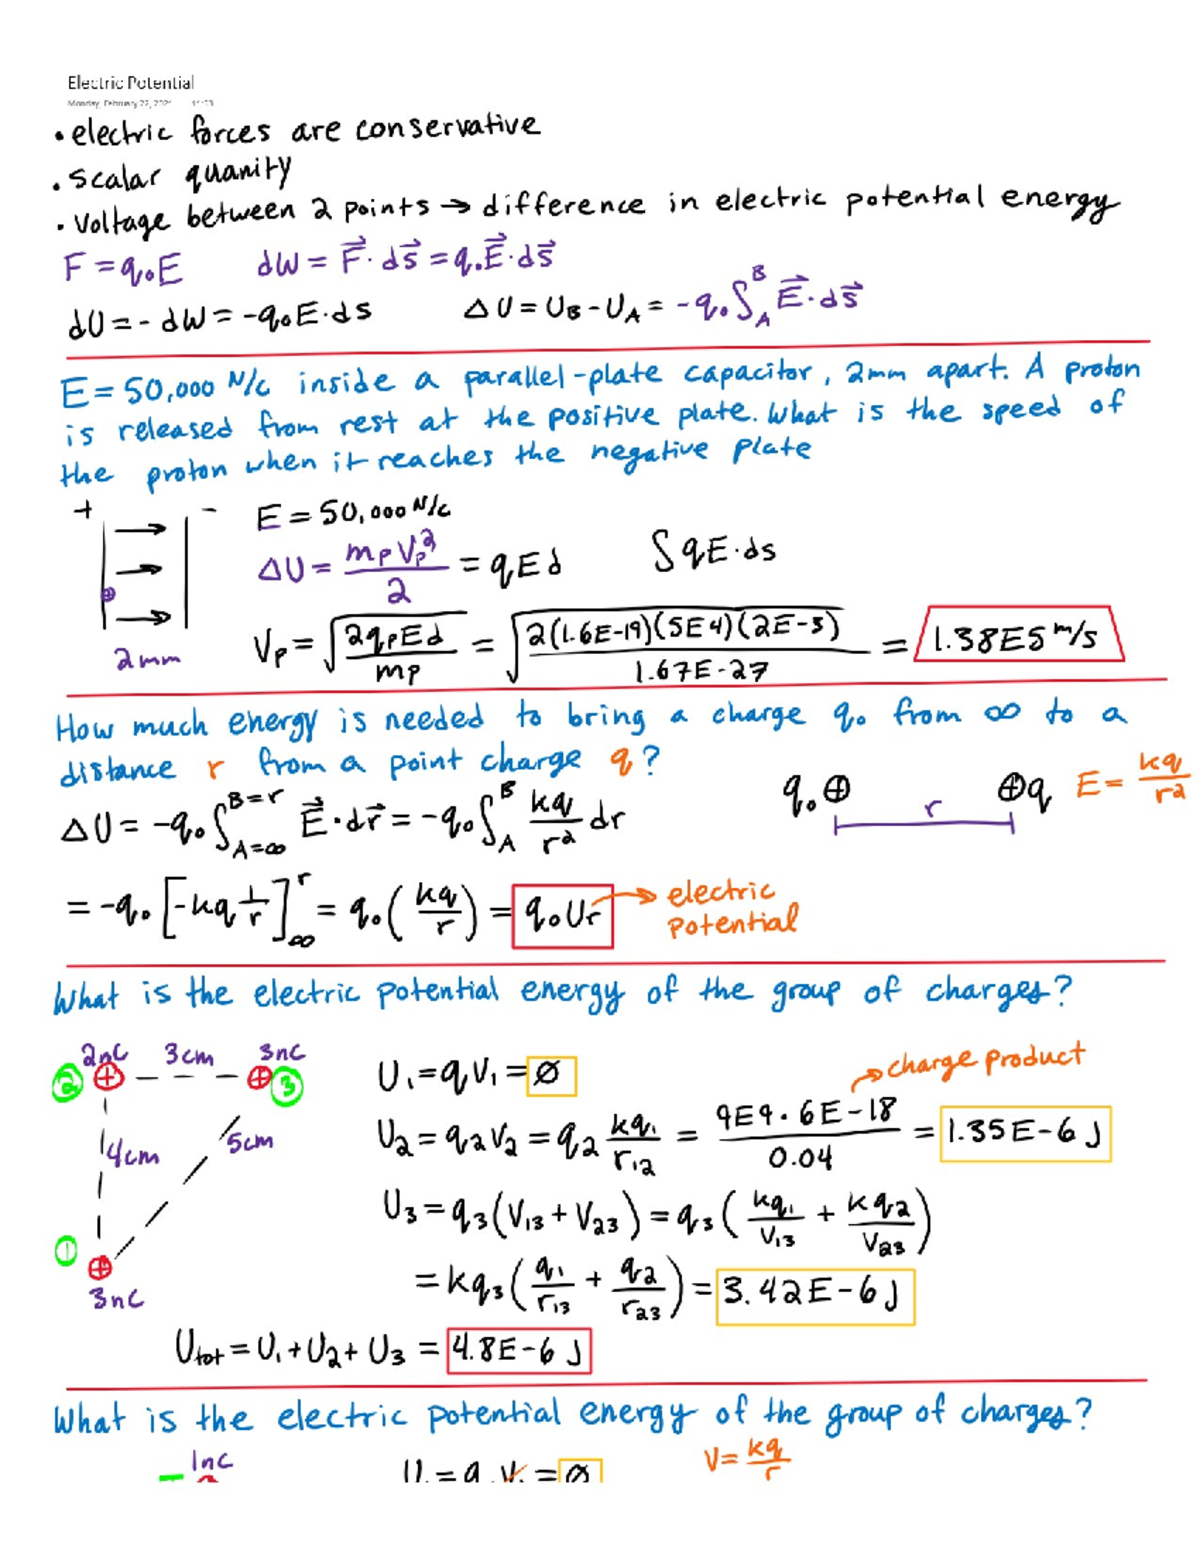 Electric Potential
Monday, February 22, 2021
• electric forces are conservative
• scalar quanity
• Voltage between 2 points → difference in electric potential energy
F = q₀E dW = F⃗·ds⃗ = q₀E⃗·ds⃗
dU = - dW = -q₀E·ds ΔU = U_B - U_A = -q₀∫_A^B E⃗·ds⃗
E = 50,000 N/C inside a parallel-plate capacitor, 2mm apart. A proton
is released from rest at the positive plate. What is the speed of
the proton when it reaches the negative plate
+ - E = 50,000 N/C
ΔU = m_p v_p²/2 = qEd ∫qE·ds
V_p = √(2q_pEd/m_p) = √(2(1.6E-19)(5E4)(2E-3)/1.67E-27) = 1.38E5 m/s
2mm
How much energy is needed to bring a charge q₀ from ∞ to a
distance r from a point charge q?
q₀⊕ r ⊕q E = kq/r²
ΔU = -q₀∫_{A=∞}^{B=r} E⃗·dr⃗ = -q₀∫_A^B kq/r² dr
= -q₀[-kq 1/r]_∞^r = q₀(kq/r) = q₀Ur → electric potential
What is the electric potential energy of the group of charges?
2nC 3cm 3nC
② ⊕ ⊕ ③
4cm 5cm
① ⊕
3nC
U₁ = qV₁ = ∅
→ charge product
U₂ = q₂V₂ = q₂ kq₁/r₁₂ = 9E9·6E-18/0.04 = 1.35E-6 J
U₃ = q₃(V₁₃ + V₂₃) = q₃(kq₁/V₁₃ + kq₂/V₂₃)
= kq₃(q₁/r₁₃ + q₂/r₂₃) = 3.42E-6 J
U_tot = U₁ + U₂ + U₃ = 4.8E-6 J
What is the electric potential energy of the group of charges?
1nC V = kq/r